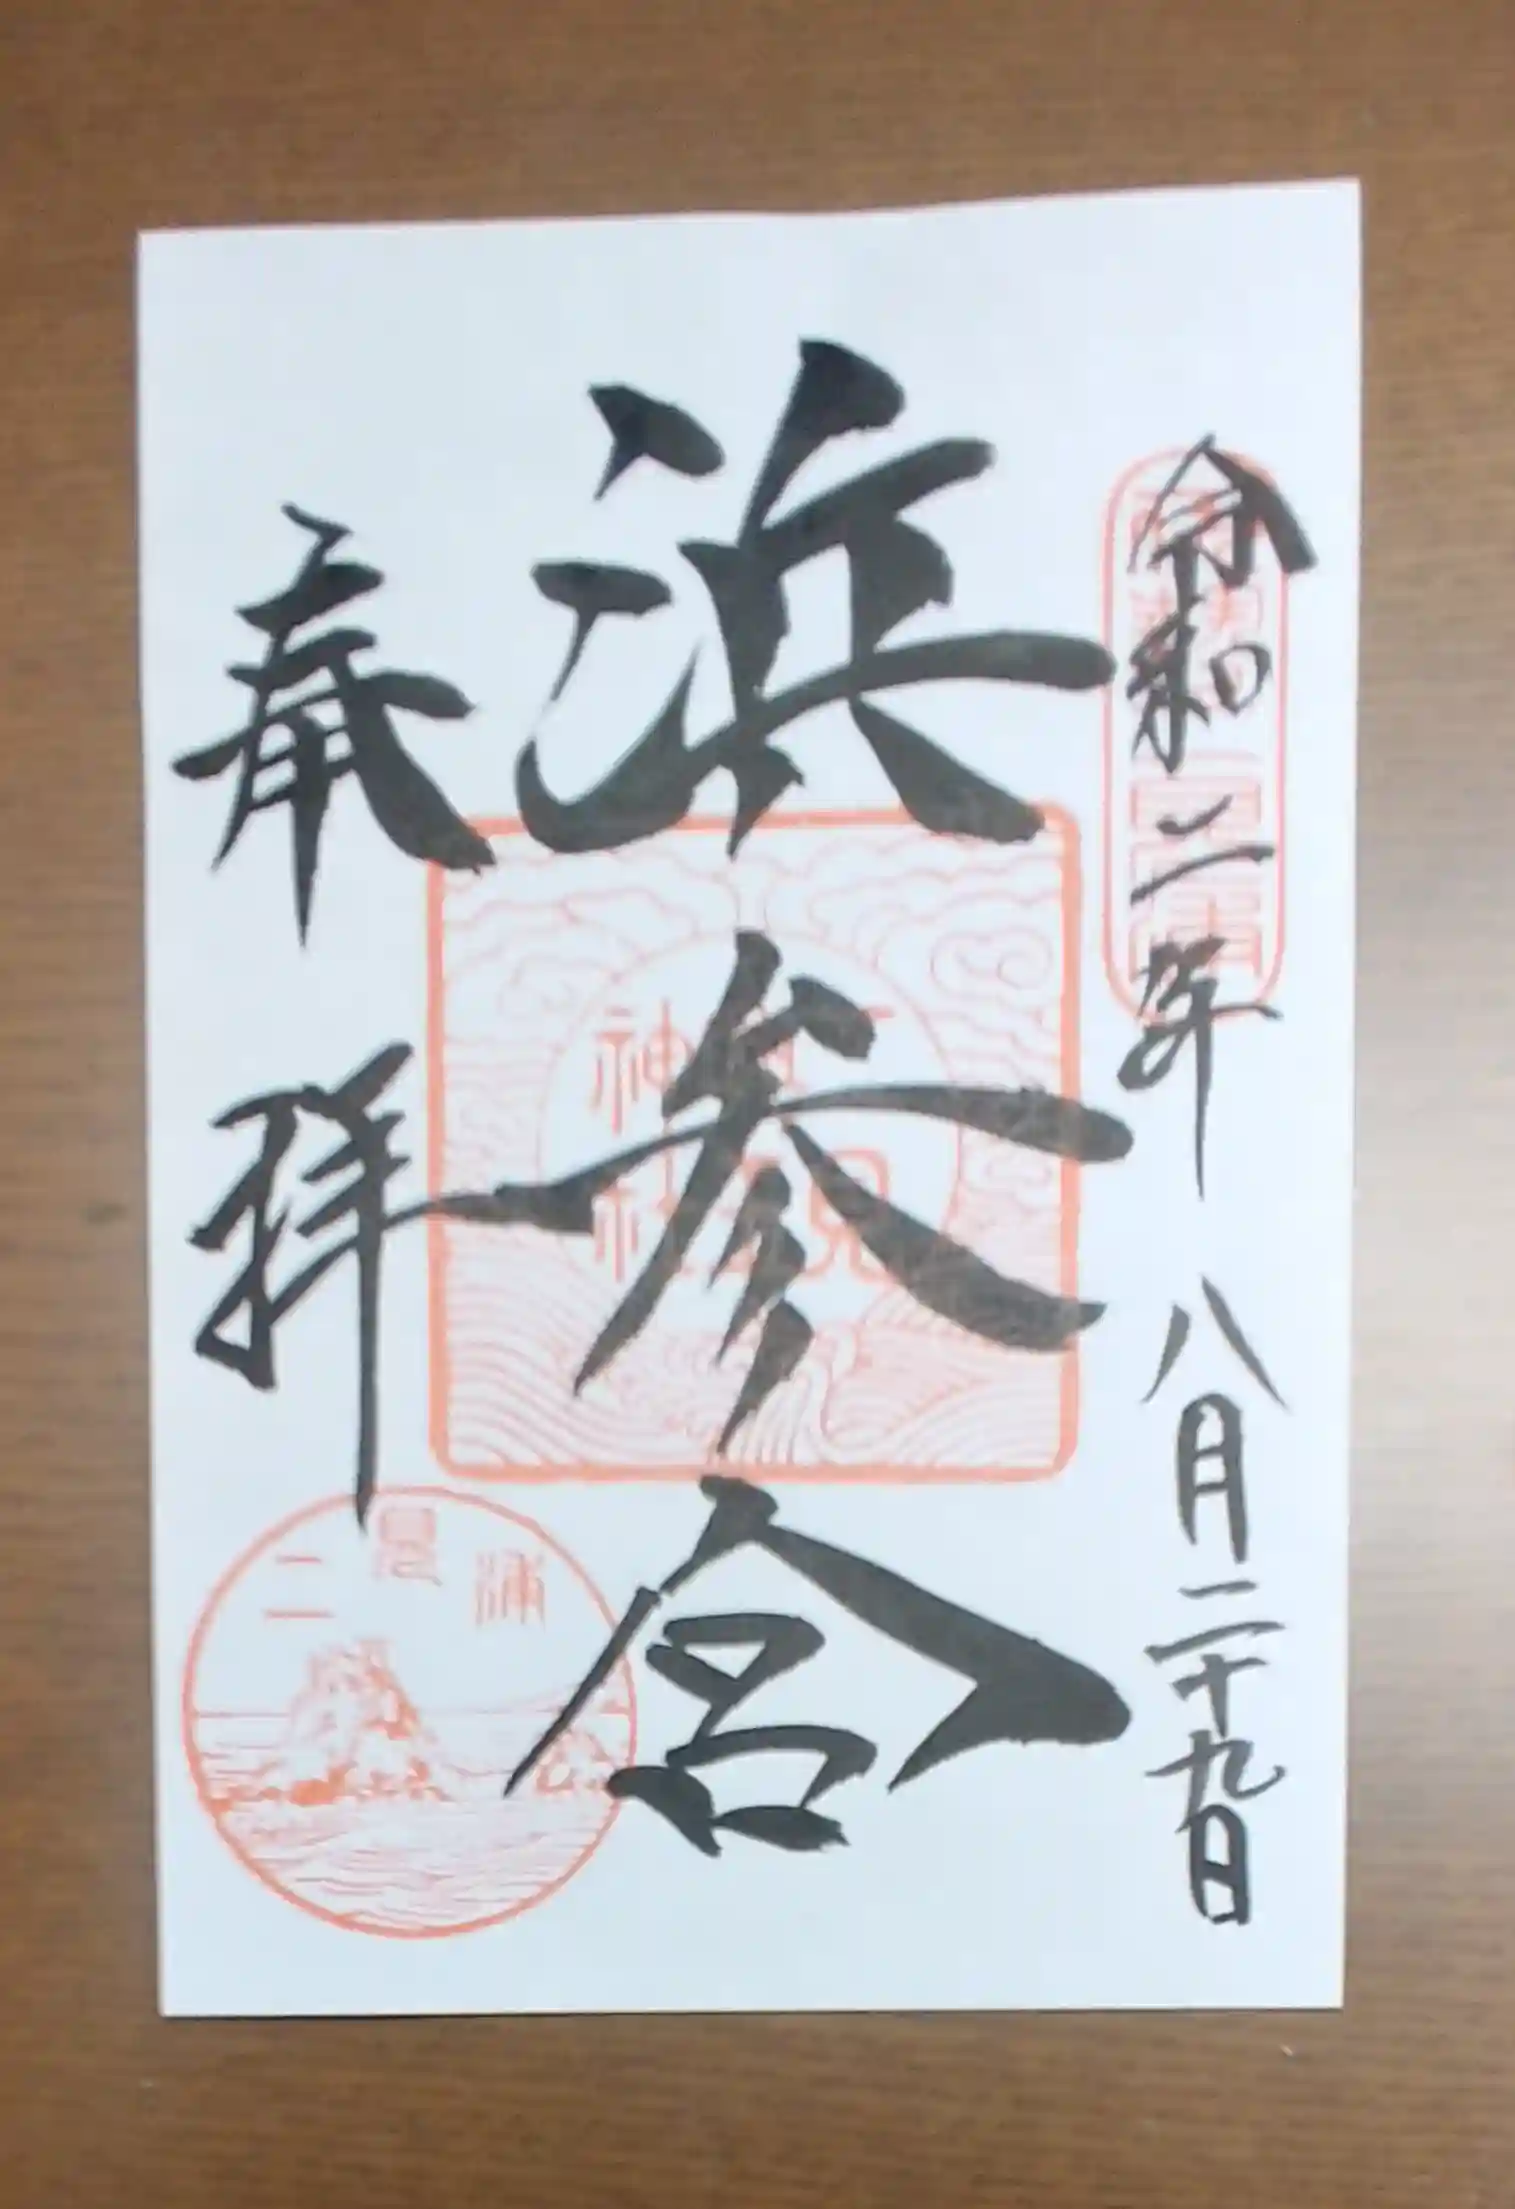 令和二年 八月二十九日
浜参宮
奉拝
二見
神社
二見浦